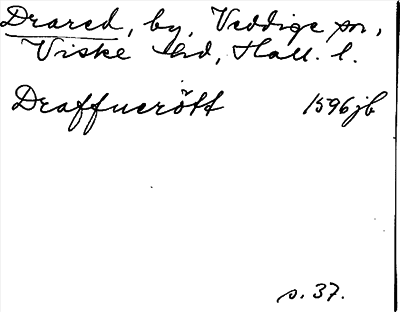 Drared, by, Veddige sn,
Viske hd, Hall. l.
Draffuerött 1596 jb
s. 37.